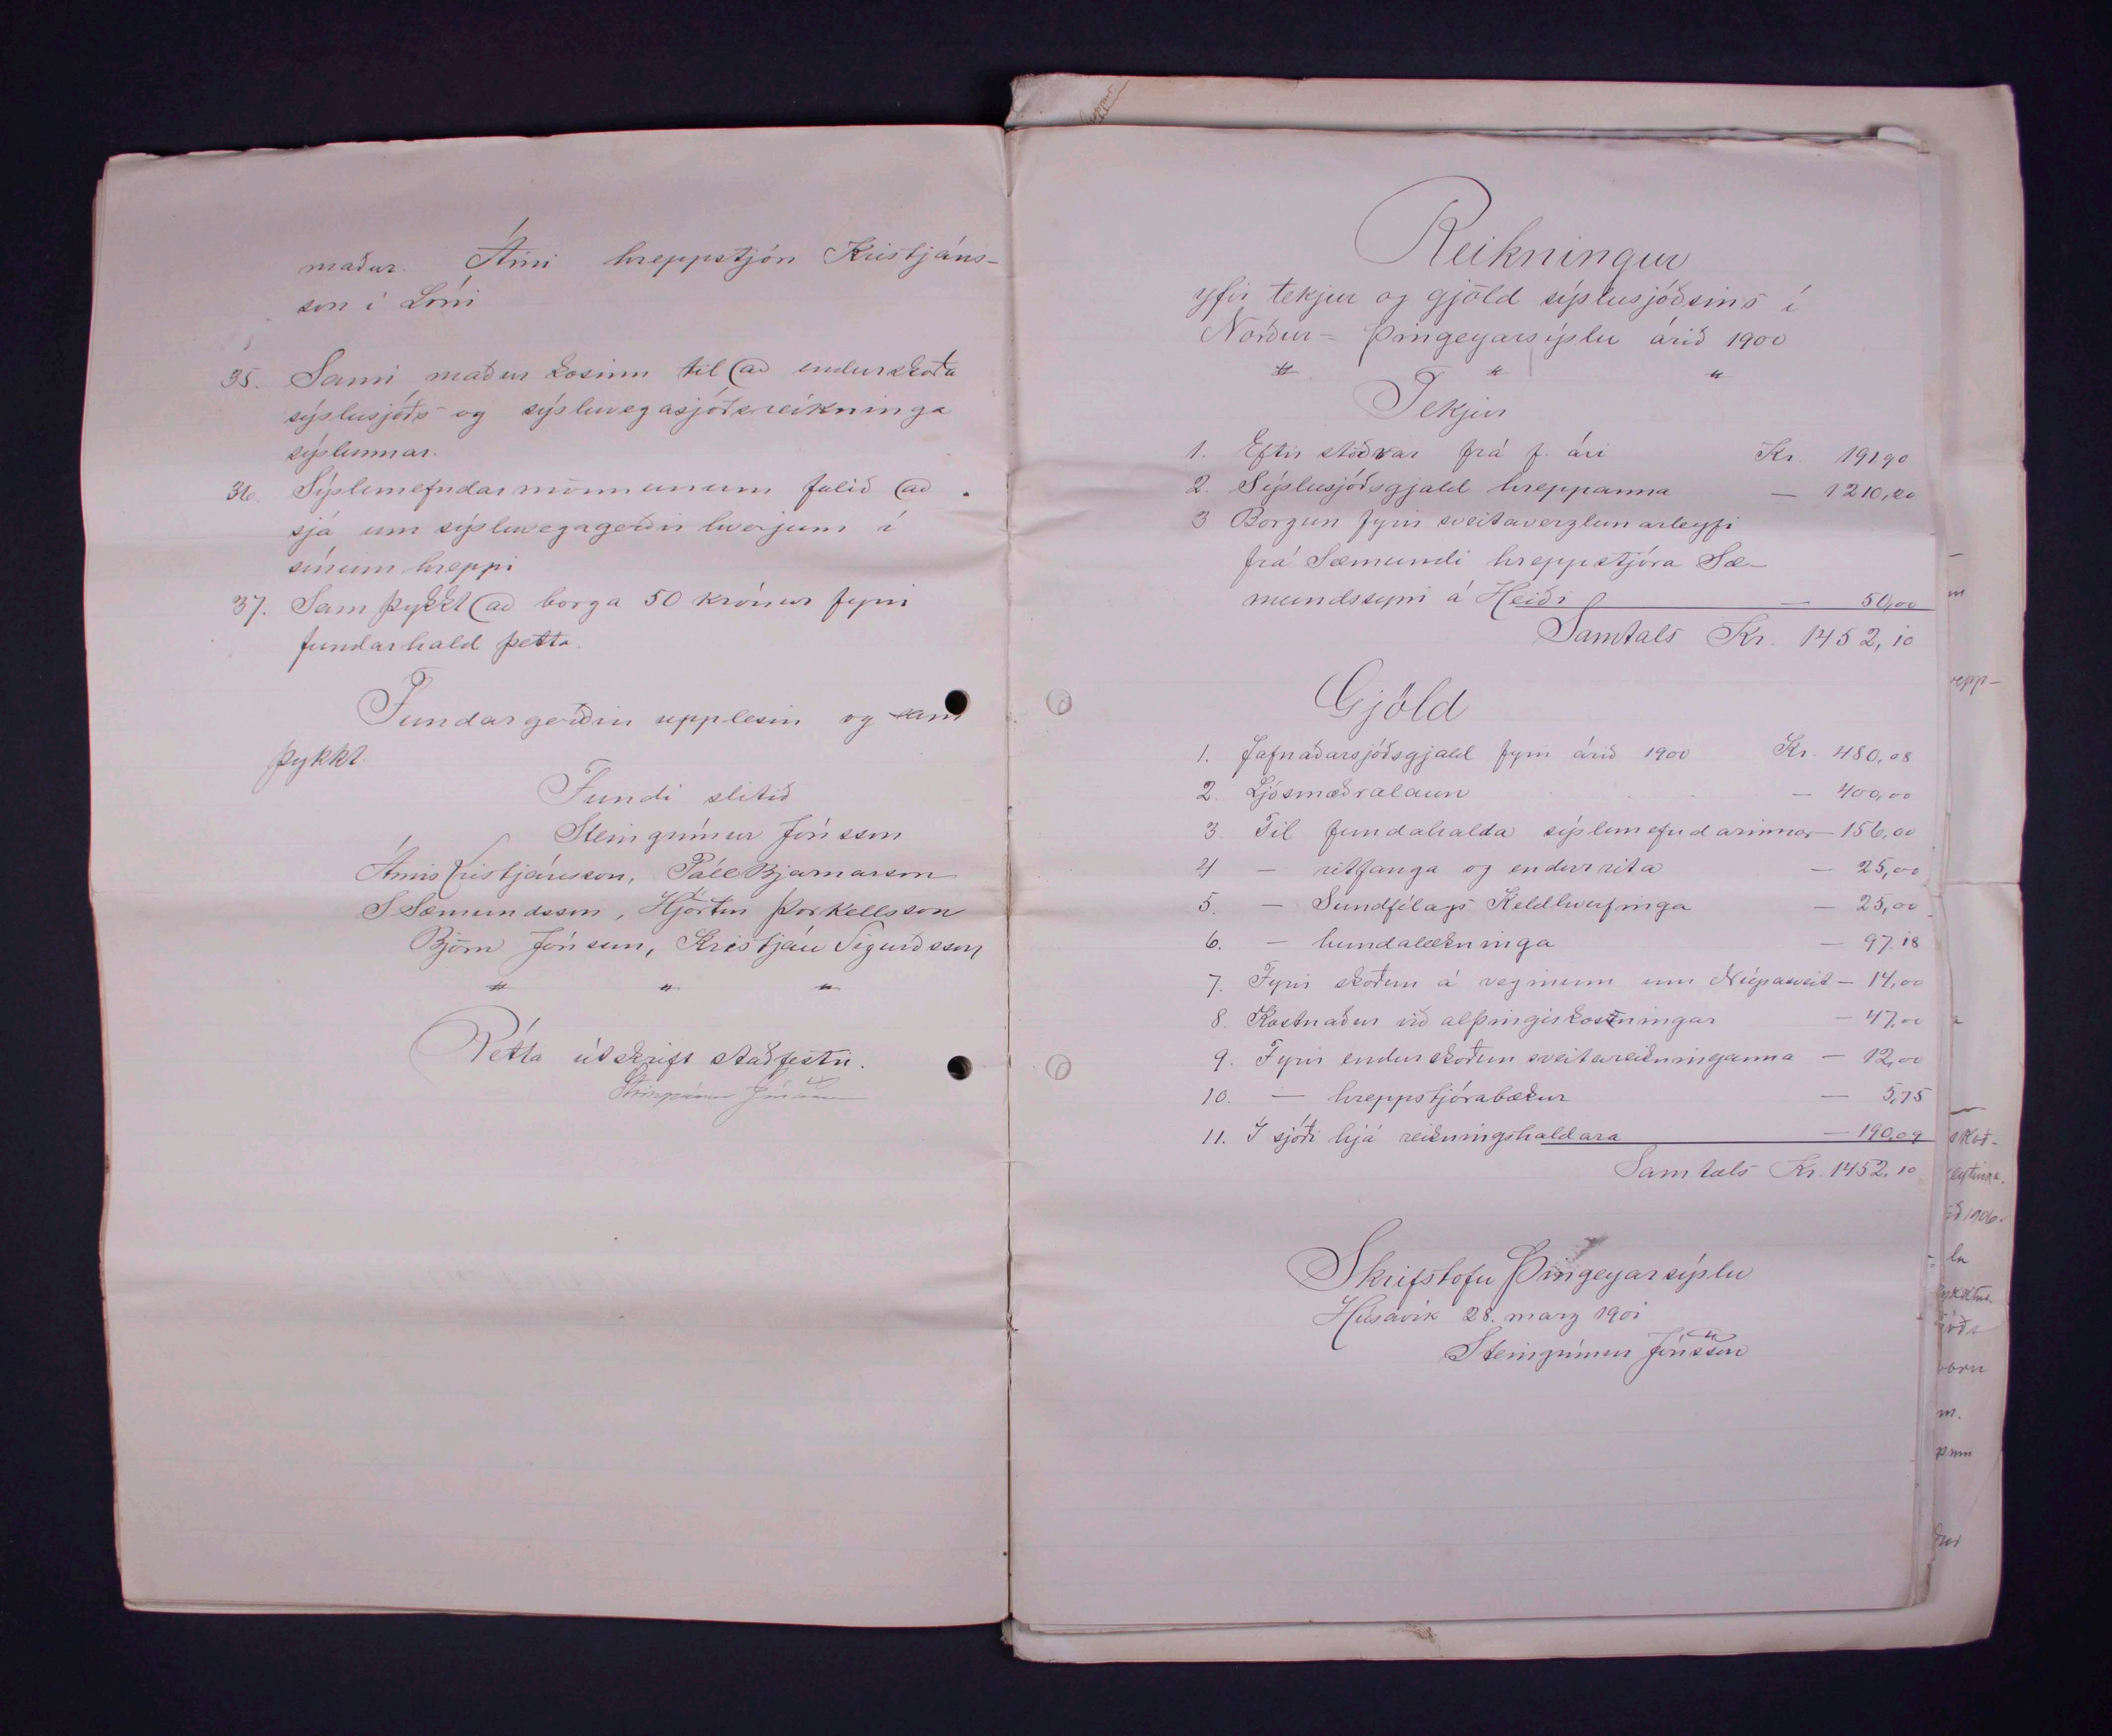 maður. Árni hreppstjóri Kristjáns-
son í Lóni
35. Sami maður kosinn til að endurskoða
sýslusjóðs og sýsluvegasjóðsreikninga
sýslunnar.
36. Sýslunefndarmönnunum falið að
sjá um sýsluvegagerðir hverjum í
sínum hreppi
37. Samþykkt að borga 50 krónur fyrir
fundarhald þetta.
Fundargerðin upplesin og sam
þykkt.
Fundi slitið
Steingrímur Jónsson
Árni Kristjánsson, Páll Bjarnarson
S Sæmundsson, Hjörtur Þorkellsson
Björn Jónsson, Kristján Sigurðsson
" " "
Rétta útskrift staðfestir.
Steingrímur Jónsson
Reikningur
yfir tekjur og gjöld sýslusjóðsins í
Norður-Þingeyarsýslu árið 1900
" " "
Tekjur
1. Eftirstöðvar frá f. ári Kr. 191 90
2. Sýslusjóðsgjald hreppanna — 1210,20
3 Borgun fyrir sveitaverzlunarleyfi
frá Sæmundi hreppstjóra Sæ-
mundssyni á Heiði — 50,00
Samtals Kr. 1452,10
Gjöld
1. Jafnaðarsjóðsgjald fyrir árið 1900 Kr. 480,08
2. Ljósmæðralaun — 400,00
3. Til fundahalda sýslunefndarinnar — 156,00
4 — ritfanga og endurrita — 25,00
5. — Sundfélags Keldhverfinga — 25,00
6. — hundalækninga — 97.18
7. Fyrir skoðun á veginum um Núpasveit — 14,00
8. Kostnaður við alþingiskosningar — 47,00
9. Fyrir endurskoðun sveitareikninganna — 12,00
10. — hreppstjórabækur — 5,75
11. Í sjóði hjá reikningshaldara — 190,09
Samtals Kr. 1452,10
Skrifstofu Þingeyarsýslu
Húsavík 28. marz 1901
Steingrímur Jónsson